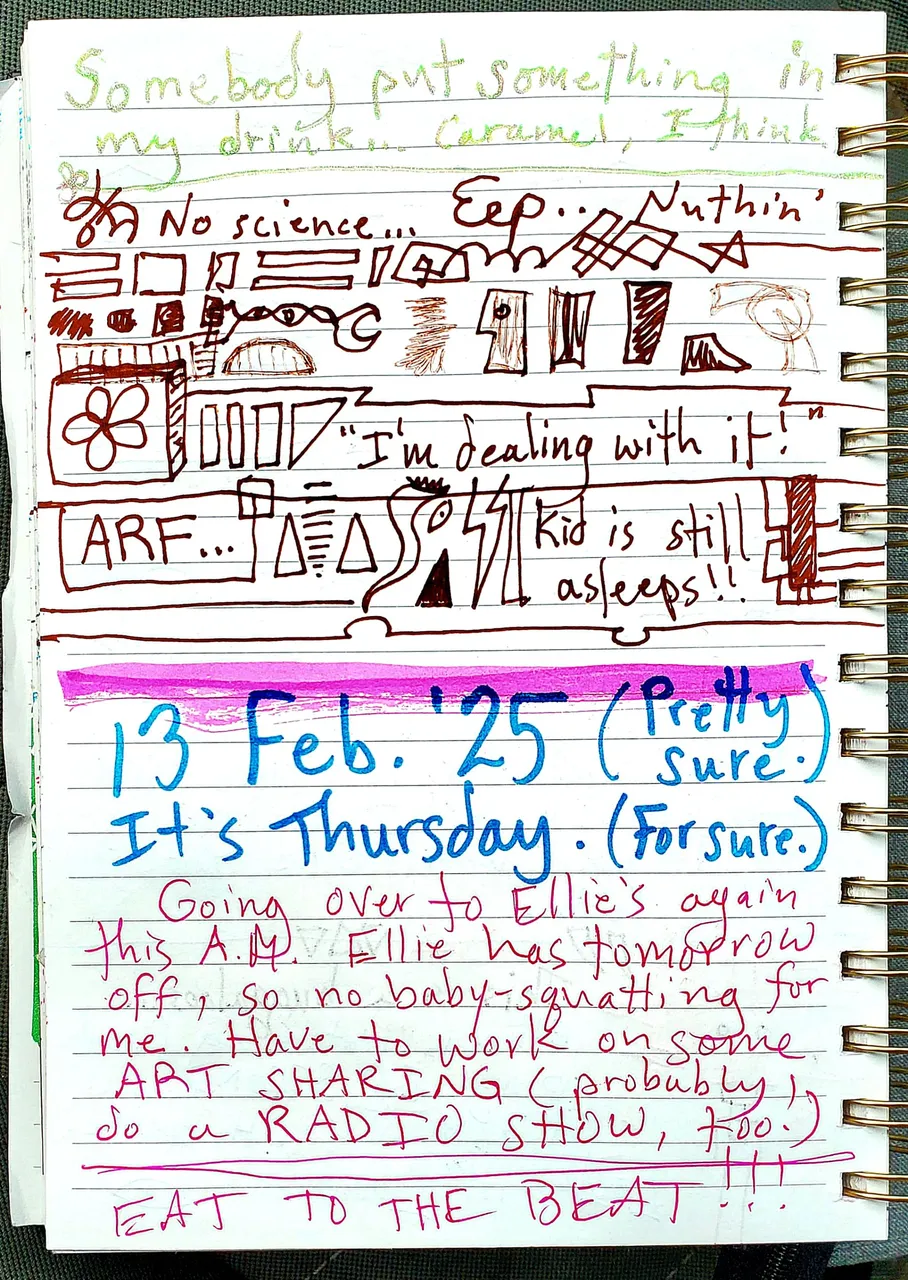 Somebody put something in
my drink... Caramel, I think
No science... Eep.. Nuthin'
"I'm dealing with it!"
ARF... Kid is still
asleeps!!
13 Feb. '25 (Pretty
sure.)
It's Thursday. (For sure.)
Going over to Ellie's again
this A.M. Ellie has tomorrow
off, so no baby-squatting for
me. Have to work on some
ART SHARING (probably,
do a RADIO SHOW, too.)
EAT TO THE BEAT!!!